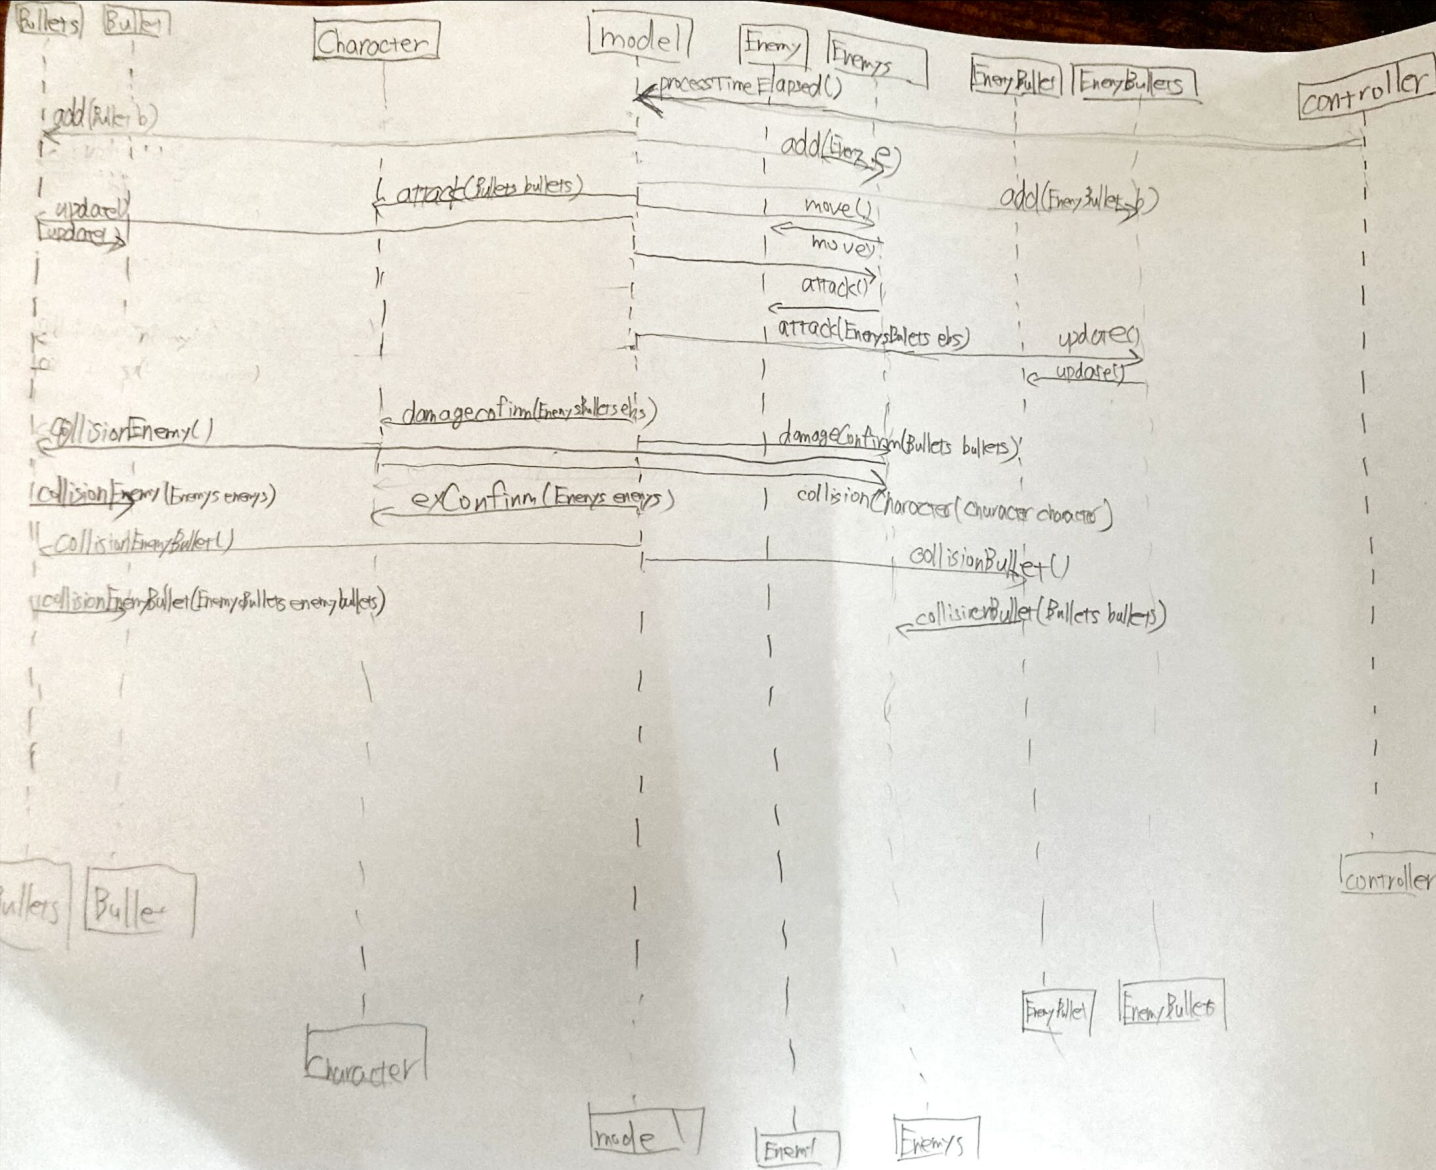 Bullets
Bullet
Character
model
Enemy
Enemys
EnemyBullet
EnemyBullets
controller
processTimeElapsed()
add(Bullet b)
add(Enemy e)
attack(Bullets bullets)
add(EnemyBullet b)
update()
move()
update()
move()
attack()
attack(EnemysBullets ebs)
update()
update()
damagecofirm(EnemysBullets ebs)
collisionEnemy()
damageConfirm(Bullets bullets)
collisionEnemy(Enemys enemys)
exConfirm(Enemys enemys)
collisionCharacter(Character character)
collisionEnemyBullet()
collisionBullet()
collisionEnemyBullet(EnemyBullets enemybullets)
collisionBullet(Bullets bullets)
controller
ullets
Bullet
EnemyBullet
EnemyBullets
Character
model
Enemy
Enemys